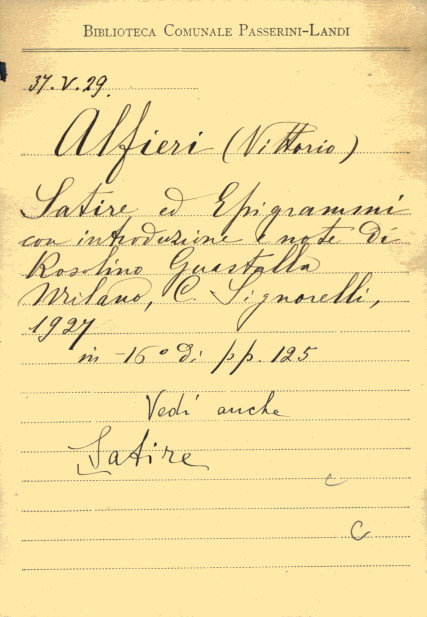 BIBLIOTECA COMUNALE PASSERINI-LANDI
37.V.29.
Alfieri (Vittorio)
Satire ed Epigrammi
con introduzione e note di
Rosolino Guastalla
Milano, C. Signorelli,
1927
in-16° di pp. 125
Vedi anche
Satire
c
C